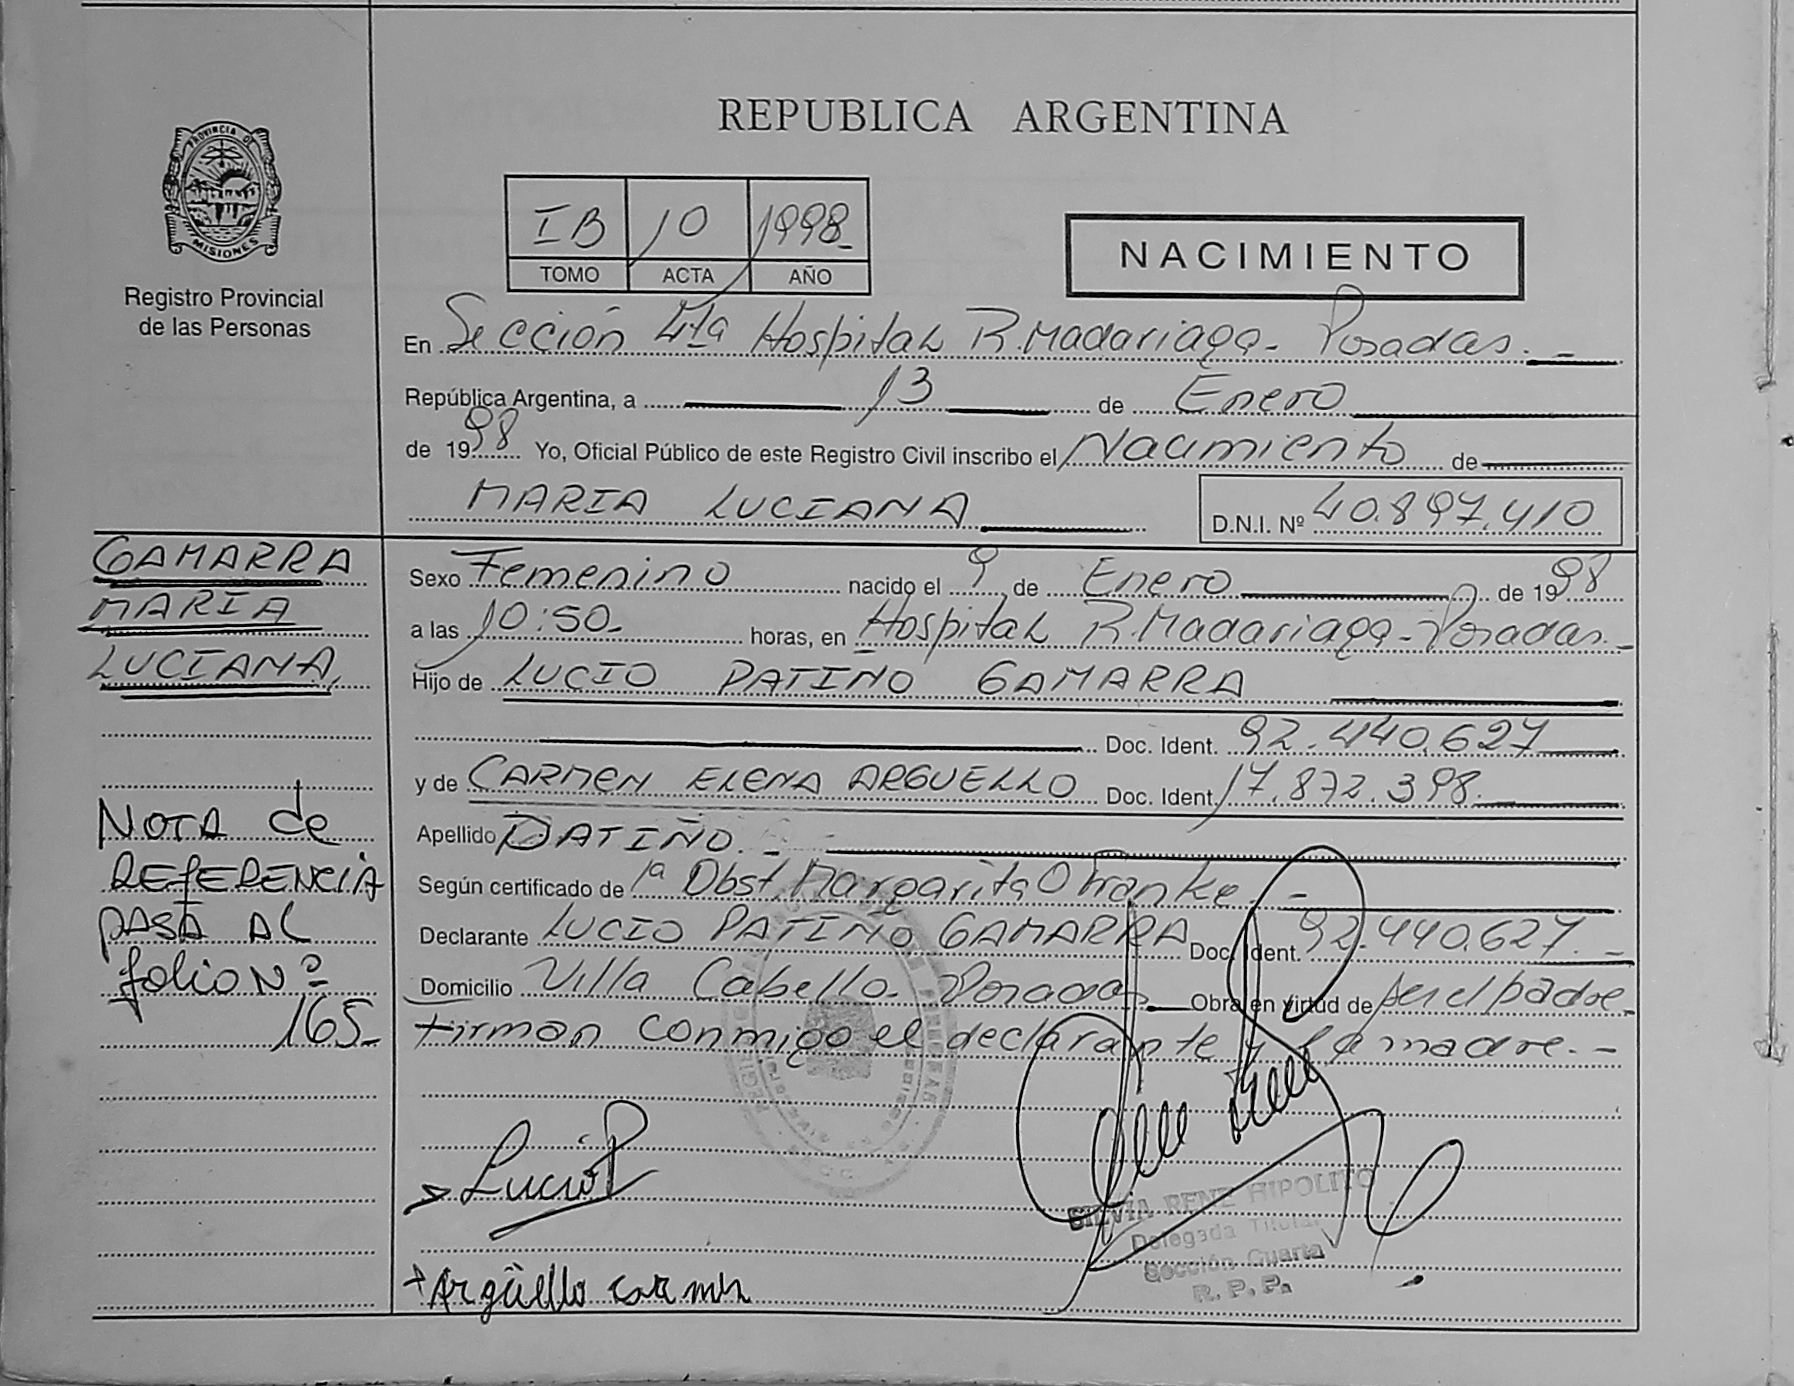 REPUBLICA ARGENTINA
PROVINCIA DE
MISIONES
Registro Provincial
de las Personas
IB 10 1998
TOMO ACTA AÑO
NACIMIENTO
En Sección 4ta Hospital R. Madariaga - Posadas.-
República Argentina, a 13 de Enero
de 1998 Yo, Oficial Público de este Registro Civil inscribo el Nacimiento de
MARIA LUCIANA D.N.I. Nº 40.897.410
GAMARRA
MARIA
LUCIANA,
Sexo Femenino nacido el 9 de Enero de 1998
a las 10:50- horas, en Hospital R. Madariaga - Posadas.-
Hijo de LUCIO PATIÑO GAMARRA
Doc. Ident. 92.440.627
y de CARMEN ELENA ARGUELLO Doc. Ident. 17.872.398.
Apellido PATIÑO.-
Según certificado de 1ª Obst Margarita
Declarante LUCIO PATIÑO GAMARRA Doc. Ident. 92.440.627.-
Domicilio Villa Cabello - Posadas Obra en virtud de ser el padre.
Firman conmigo el declarante y la madre.-
NOTA de
REFERENCIA
PASA AL
folio Nº
165-
Lucio P
Argüello carmen
SILVIA RENE HIPOLITO
Delegada Titular
Sección Cuarta
R. P. P.